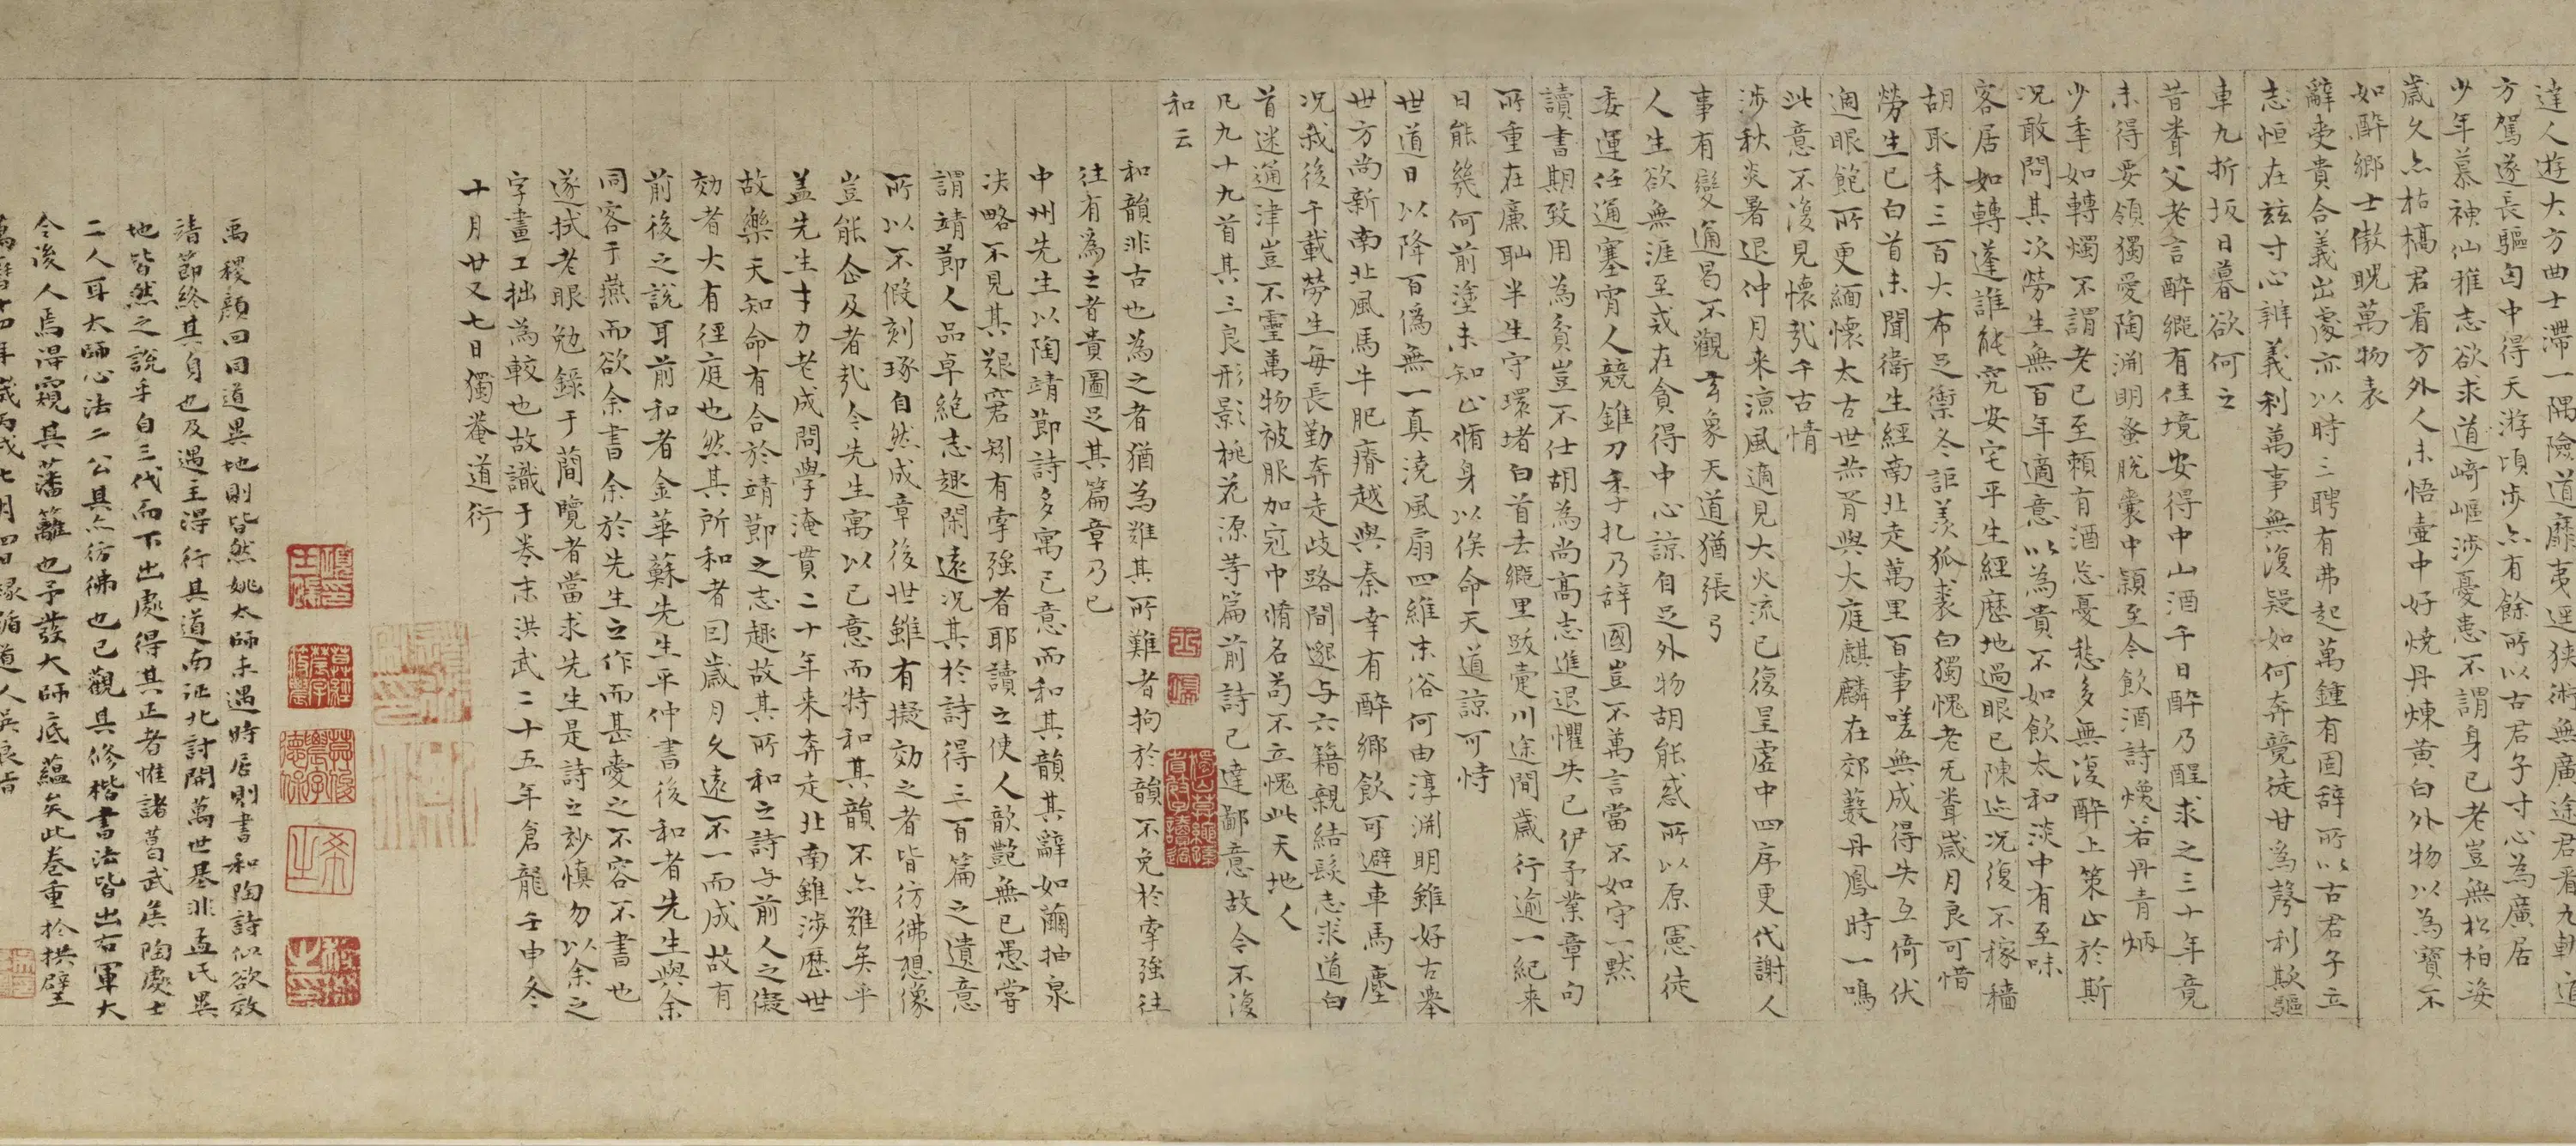 達人遊大方曲士滯一隅險道靡夷逕狹術無廣途君看九軌道
方駕遂長驅囱中得天游頃步亦有餘所以古君子寸心為廣居
少年慕神仙雅志欲求道崎嶇涉憂患不謂身已老豈無松柏姿
歲久亦枯槁君看方外人未悟壷中好燒丹煉黃白外物以為寶不
如醉鄉士傲睨萬物表
辭受貴合義出處亦以時三聘有弗起萬鍾有固辭所以古君子立
志恒在兹寸心辨義利萬事無復疑如何奔競徒甘為勢利欺驅
車九折坂日暮欲何之
昔耆父老言醉鄉有佳境安得中山酒千日醉乃醒求之三十年竟
未得要領獨愛陶淵明蚤脫囊中穎至今飲酒詩煥若丹青炳
少年如轉燭不謂老已至賴有酒忘憂愁多無復醉上策止於斯
況敢問其次勞生無百年適意以為貴不如飲太和淡中有至味
客居如轉蓬誰能究安宅平生經歷地過眼已陳迹況復不稼穡
胡取禾三百大布足禦冬詎羡狐裘白獨愧老无聞歲月良可惜
勞生已白首未聞衛生經南北走萬里百事嗟無成得失互倚伏
過眼飽所更緬懷太古世恭胥與大庭麒麟在郊薮丹鳳時一鳴
此意不復見懷哉千古情
涉秋炎暑退仲月来涼風適見大火流已復星虛中四序更代謝人
事有變通曷不觀玄象天道猶張弓
人生欲無涯至戒在貪得中心諒自足外物胡能惑所以原憲徒
委運任通塞宵人競錐刀季札乃辭國豈不萬言當不如守一黙
讀書期致用為貧豈不仕胡為尚髙志進退懼失己伊予業章句
所重在廉恥半生守環堵白首去鄉里跋涉川途間歲行逾一紀来
日能幾何前塗未知止脩身以俟命天道諒可恃
世道日以降百偽無一真澆風扇四維末俗何由淳淵明雖好古舉
世方尚新南北風馬牛肥瘠越與秦幸有醉鄉飲可避車馬塵
況我後千載勞生每長勤奔走歧路間邈与六籍親結髮志求道白
首迷通津豈不靈萬物被服加冠巾脩名苟不立愧此天地人
凡九十九首其三良形影桃花源等篇前詩已達鄙意故今不復
和云
和韻非古也為之者猶為難其所難者拘於韻不免於牽強往
往有為之者貴圖足其篇章乃已
中州先生以陶靖節詩多寓己意而和其韻其辭如繭抽泉
决略不見其艱窘矧有牽強者耶讀之使人歆艷無已愚嘗
謂靖節人品卓絶志趣閑遠況其於詩得三百篇之遺意
所以不假刻琢自然成章後世雖有擬効之者皆彷彿想像
豈能企及者哉今先生寓以己意而特和其韻不亦難矣乎
盖先生才力老成問學淹貫二十年来奔走北南雖涉歷世
故樂天知命有合於靖節之志趣故其所和之詩与前人之儗
効者大有徑庭也然其所和者囙歲月久遠不一而成故有
前後之說耳前和者金華蘇先生平仲書後和者先生與余
同客于燕而欲余書余於先生之作而甚愛之不容不書也
遂拭老眼勉錄于蕳覽者當求先生是詩之妙慎勿以余之
字畫工拙為較也故識于卷末洪武二十五年倉龍壬申冬
十月廿又七日獨菴道衍
禹稷顏回同道異地則皆然姚太師未遇時居則書和陶詩似欲效
清節終其身也及遇主得行其道南征北討開萬世基非孟氏異
地皆然之說乎自三代而下出處得其正者惟諸葛武侯陶處士
二人耳太師心法二公其亦彷彿也已觀其修楷書法皆出右軍大
令後人焉得窺其藩籬也予發大師底蘊矣此卷重於拱璧
萬曆十四年歲丙戌七月四日緣循道人吳良旨